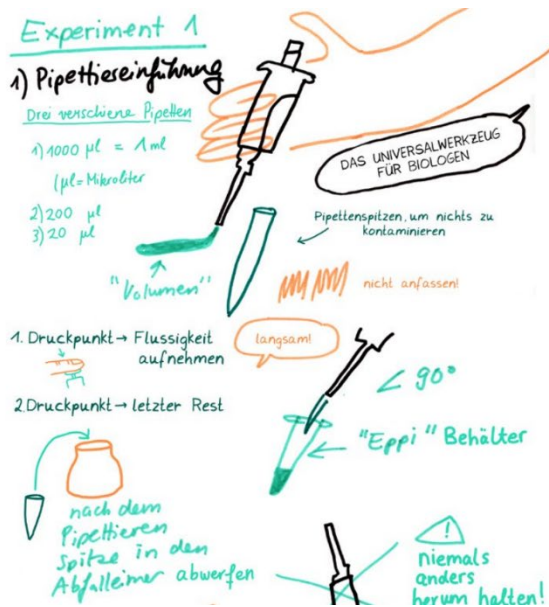 Experiment 1
1) Pipettieseinführung
Drei verschiene Pipetten
1) 1000 µl = 1 ml
(µl = Mikroliter
2) 200 µl
3) 20 µl
DAS UNIVERSALWERKZEUG
FÜR BIOLOGEN
Pipettenspitzen, um nichts zu
kontaminieren
"Volumen"
nicht anfassen!
1. Druckpunkt → Flussigkeit
aufnehmen
langsam!
2. Druckpunkt → letzter Rest
< 90°
"Eppi" Behälter
nach dem
Pipettieren
Spitze in den
Abfalleimer abwerfen
!
niemals
anders
herum halten!